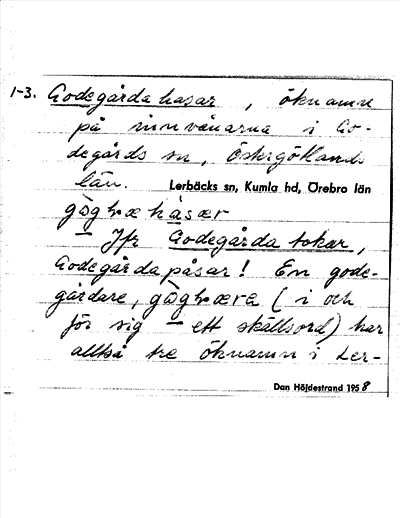 1-3. Godegårda hasar, öknamn
på innvånarna i Go-
degårds sn, Östergötlands
län. Lerbäcks sn, Kumla hd, Örebro län
hàsær
— Jfr Godegårda tokar,
Godegårda påsar! En gode-
gårdare, (i och
för sig — ett skällsord) har
alltså tre öknamn i Ler-
Dan Höjdestrand 1958